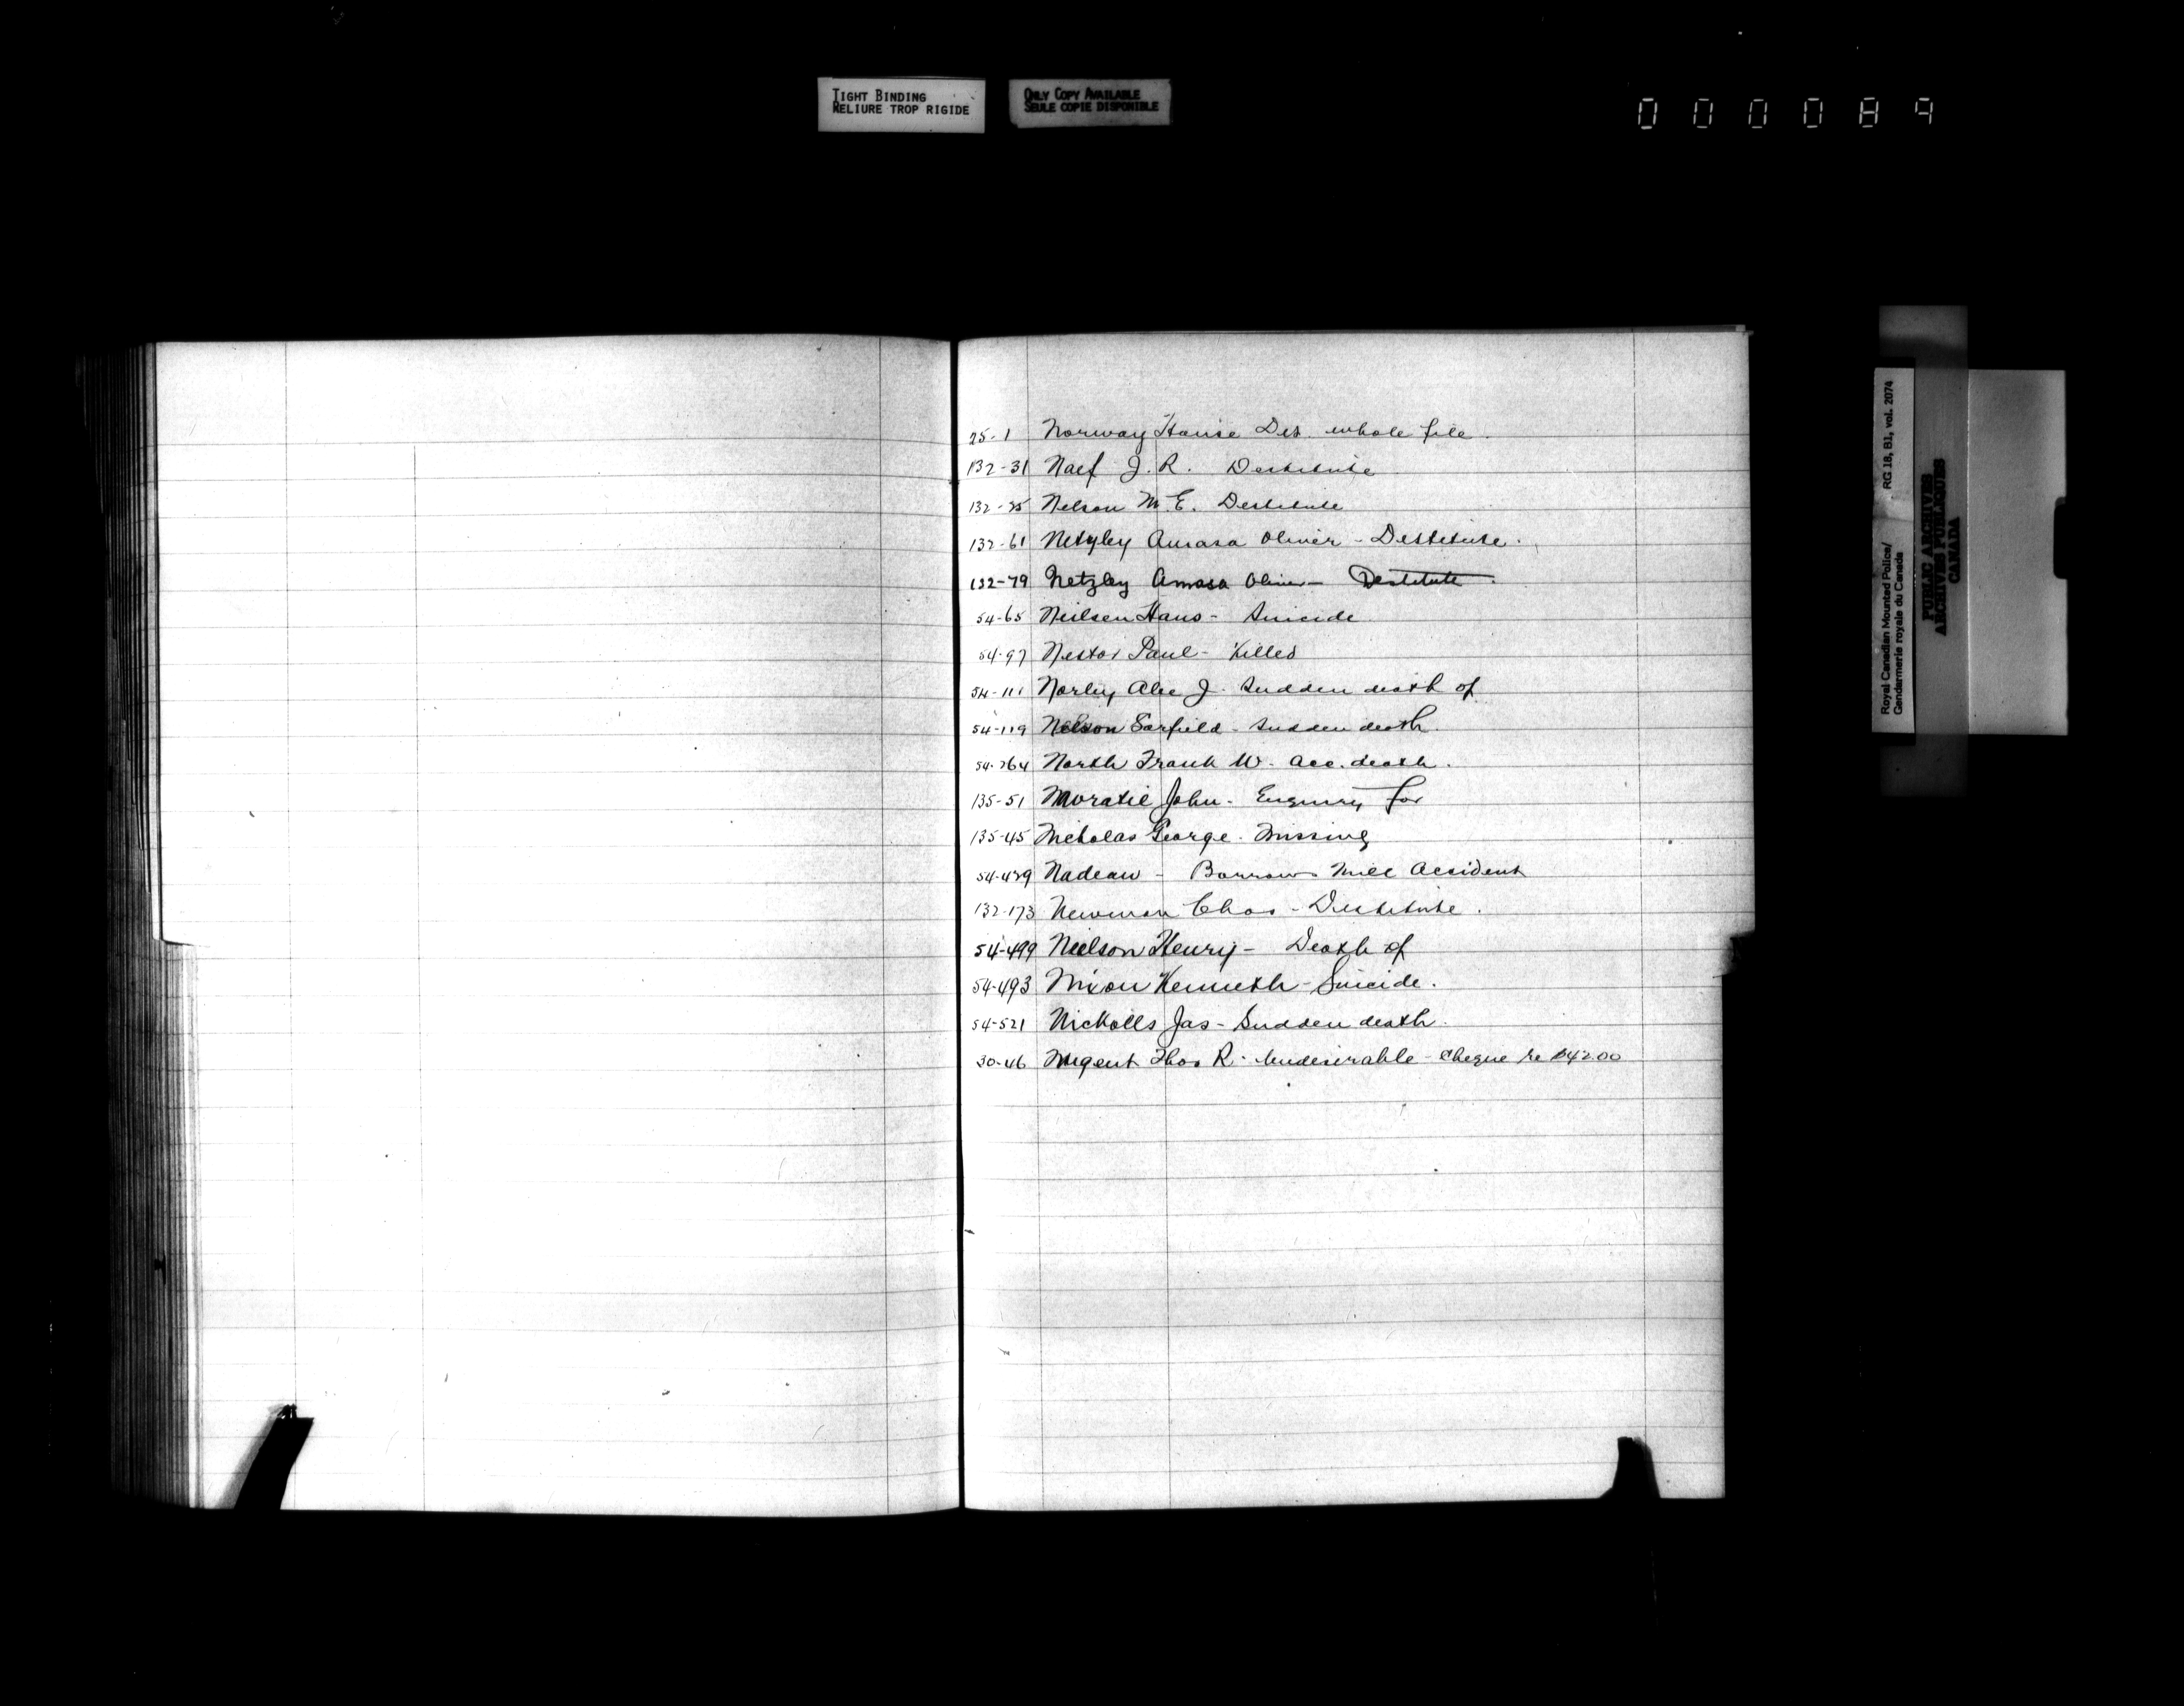 TIGHT BINDING
RELIURE TROP RIGIDE
ONLY COPY AVAILABLE
SEULE COPIE DISPONIBLE
000089
25-1 Norway House Det. whole file.
132-31 Naef J. R. Destitute
132-35 Nelson M. E. Destitute
132-61 Netzley Amasa Oliver - Destitute.
132-79 Netzley Amasa Oliver - Destitute.
54-65 Neilsen Hans - Suicide
54-97 Nestor Paul - Killed
54-111 Norley Alec J. Sudden death of
54-119 Nelson Garfield - Sudden death.
54-264 North Frank W. Acc. death.
135-51 John - Enquiry for
135-45 Nicholas George. Missing
54-429 Nadeau - Barrows Mill Accident
132-173 Newman Chas - Destitute.
54-499 Neilson Henry - Death of
54-493 Nixon Kenneth - Suicide.
54-521 Nickolls Jas - Sudden death.
30-46 Nugent Thos R. Undesirable - Cheque re $42.00
Royal Canadian Mounted Police/
Gendarmerie royale du Canada
RG 18, B1, vol. 2074
PUBLIC ARCHIVES
ARCHIVES PUBLIQUES
CANADA